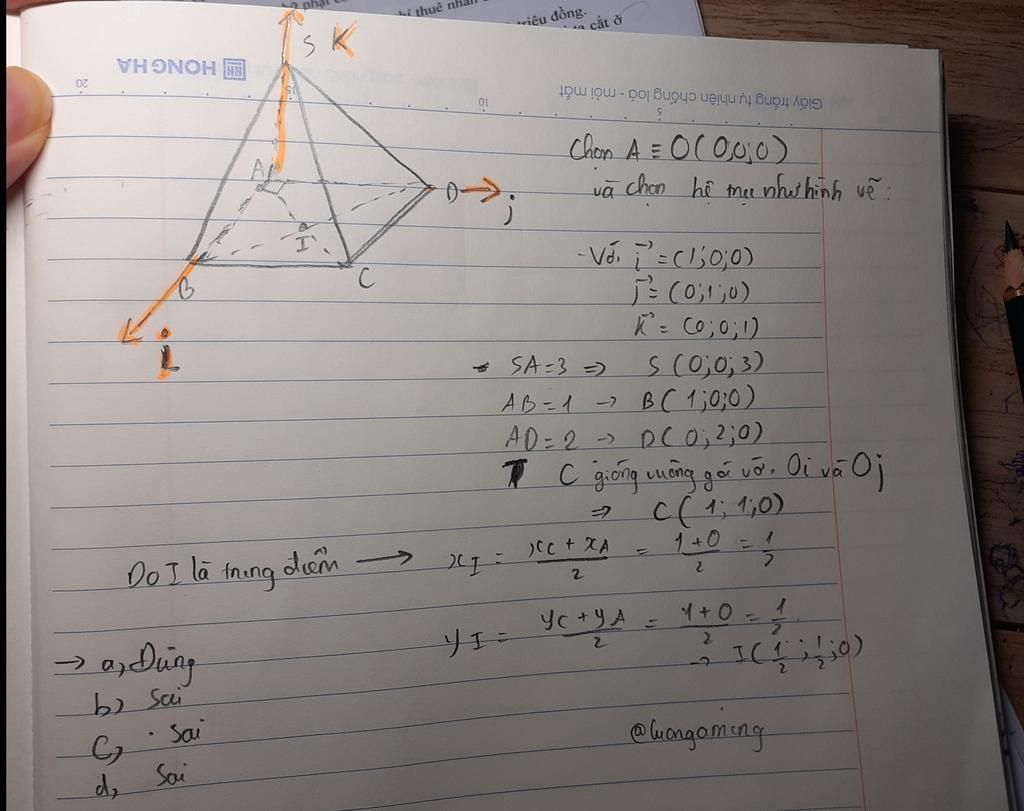 triệu đồng.
HONG HA
20 15 10 5
Giấy trắng tự nhiên chống loá - mỏi mắt
S K
A
D
j
I
B
C
i
Chọn A ≡ O(0;0;0)
và chọn hệ trục như hình vẽ:
- Với i⃗ = (1;0;0)
j⃗ = (0;1;0)
k⃗ = (0;0;1)
SA=3 => S(0;0;3)
AB=1 → B(1;0;0)
AD=2 → D(0;2;0)
C gióng vuông góc với Oi và Oj
=> C(1;1;0)
Do I là trung điểm → xI = (xC + xA)/2 = (1+0)/2 = 1/2
yI = (yC + yA)/2 = (1+0)/2 = 1/2
→ I(1/2;1/2;0)
→ a, Đúng
b) Sai
c, Sai
d, Sai